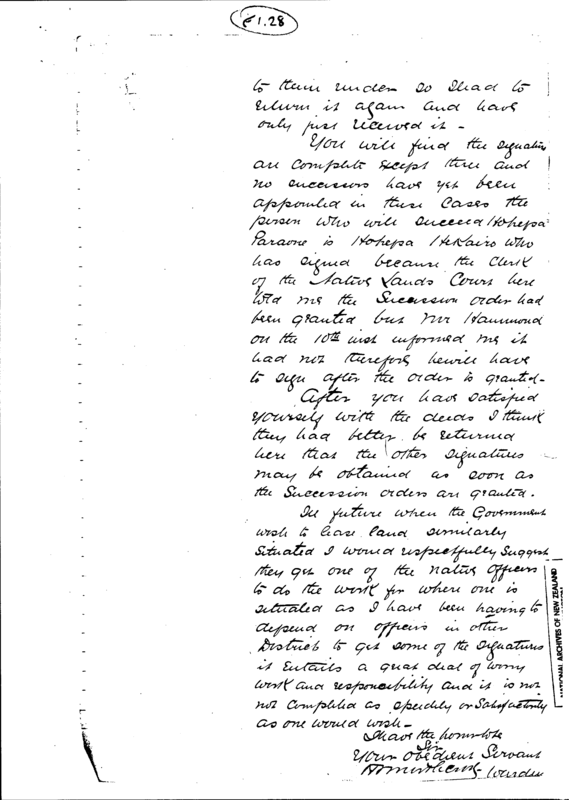 E1.28
to them under so I had to
return it again and have
only just received it -
You will find the signatures
are complete except three and
no successors have yet been
appointed in these cases the
person who will succeed Hohepa
Paraone is Hohepa who
has signed because the Clerk
of the Native Lands Court here
told me the Succession order had
been granted but Mr Hammond
on the 10th inst informed me it
had not therefore he will have
to sign after the order is granted -
After you have satisfied
yourself with the deeds I think
they had better be returned
here that the other signatures
may be obtained as soon as
the Succession orders are granted.
In future when the Government
wish to lease land similarly
situated I would respectfully suggest
they get one of the native officers
to do the work for where one is
situated as I have been having to
depend on officers in other
Districts to get some of the signatures
it entails a great deal of worry
work and responsibility and it is not
not completed as speedily or satisfactorily
as one would wish -
I have the honor to be
Sir
Your obedient Servant
Warden
NATIONAL ARCHIVES OF NEW ZEALAND